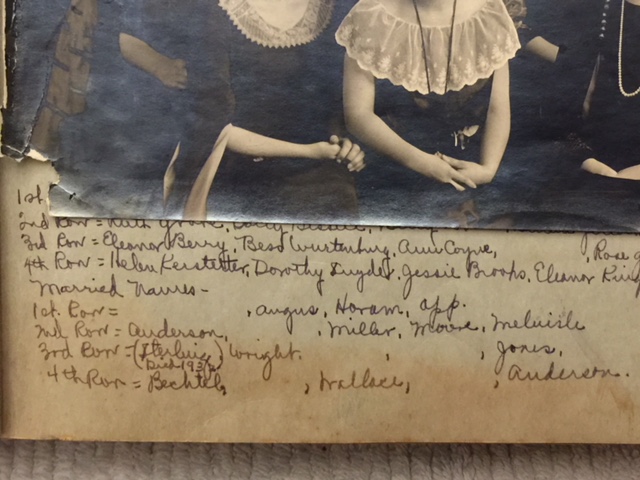 1st
2nd Row = Ruth
3rd Row = Eleanor Berry, Bess Wurtenburg, Ann Coyne, Rose
4th Row = Helen Kerstetter, Dorothy Snyder, Jessie Brooks, Eleanor
Married Names -
1st Row = , Angus, Horam, App.
2nd Row = Anderson, , Miller, Moore,
3rd Row = (Sterling) Wright. , , Jones,
(Died 193
4th Row = Bechtel, , Wallace, , Anderson.